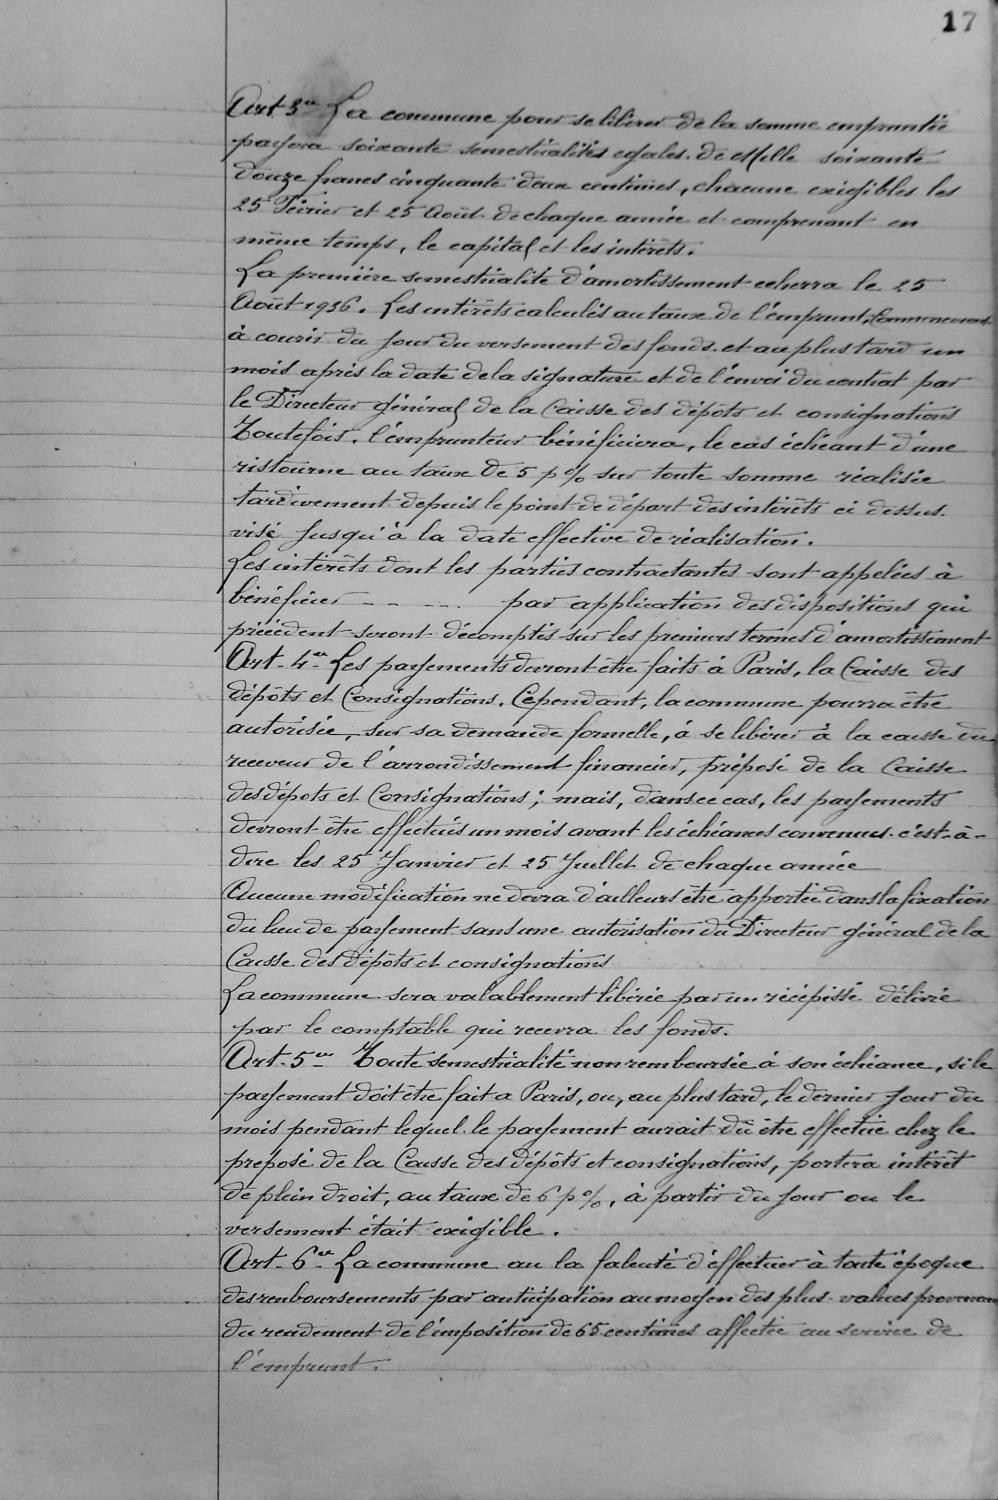 17
Art 3e La commune pour se libérer de la somme empruntée
payera soixante semestrialités egales. de Mille soixante
douze francs cinquante deux centimes, chacune exigibles les
25 Février et 25 Août de chaque année et comprenant en
même temps, le capital et les intérêts.
La première semestrialité d'amortissement echerra le 25
Août 1936. Les intérêts calculés au taux de l'emprunt, Commenceront
à courir du jour du versement des fonds. et au plus tard un
mois après la date de la signature et de l'envoi du contrat par
le Directeur général de la Caisse des dépôts et consignations
Toutefois. l'emprunteur bénéficiera, le cas échéant d'une
ristourne au taux de 5 p% sur toute somme réalisée
tardivement depuis le point de départ des intérêts ci dessus.
visé jusqu'à la date effective de réalisation.
Les intérêts dont les parties contractantes sont appelées à
bénéficier - - - ... par application des dispositions qui
précèdent seront décomptés sur les premiers termes d'amortissement
Art. 4e Les payements devront être faits à Paris, la Caisse des
dépôts et Consignations. Cependant, la commune pourra être
autorisée, sur sa demande formelle, à se libérer à la caisse du
receveur de l'arrondissement financier, préposé de la Caisse
des dépots et Consignations; mais, dans ce cas, les payements
devront être effectués un mois avant les échéances convenues. c'est-à-
dire les 25 Janvier et 25 Juillet de chaque année
Aucune modification ne devra d'ailleurs être apportée dans la fixation
du lieu de payement sans une autorisation du Directeur général de la
Caisse des dépôts et consignations
La commune sera valablement libérée par un récépissé délivré
par le comptable qui recevra les fonds.
Art. 5e Toute semestrialité non remboursée à son échéance, si le
payement doit être fait a Paris, ou, au plus tard, le dernier jour du
mois pendant lequel le payement aurait dû être effectué chez le
préposé de la Caisse des dépôts et consignations, portera intérêt
de plein droit, au taux de 6 p%, à partir du jour ou le
versement était exigible.
Art. 6e La commune au la faculté d'éffectuer à toute époque
des remboursements par anticipation au moyen des plus-values provenant
du rendement de l'imposition de 65 centimes affectée au service de
l'emprunt.